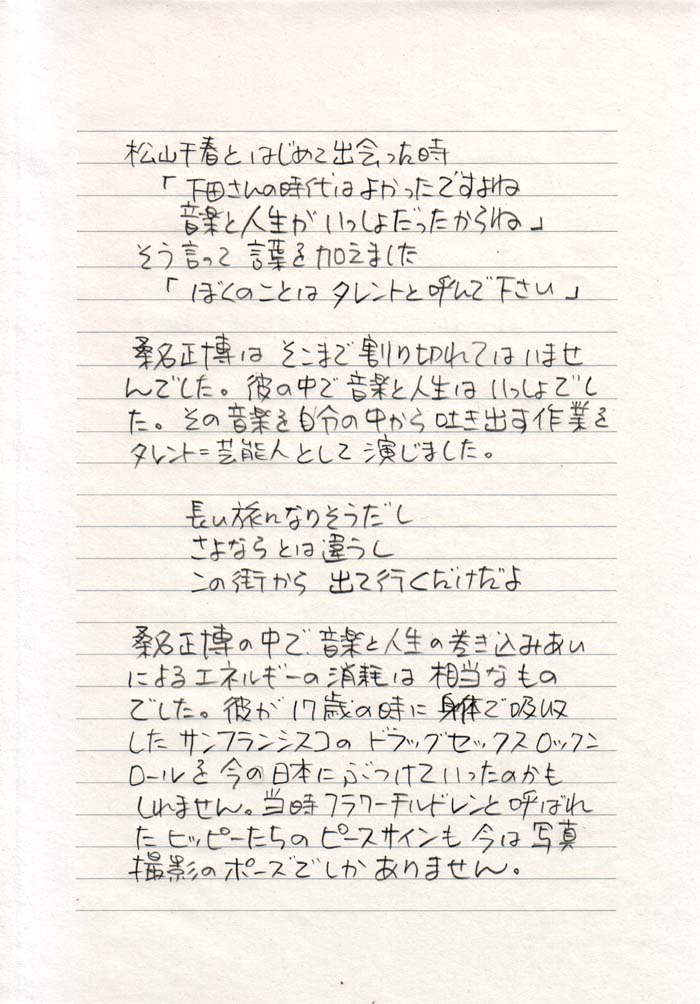 松山千春とはじめて出会った時
「下田さんの時代はよかったですよね
音楽と人生がいっしょだったからね」
そう言って言葉を加えました
「ぼくのことはタレントと呼んで下さい」
桑名正博はそこまで割り切れてはいませ
んでした。彼の中で音楽と人生はいっしょでし
た。その音楽を自分の中から吐き出す作業を
タレント=芸能人として演じました。
長い旅になりそうだし
さよならとは違うし
この街から出て行くだけだよ
桑名正博の中で音楽と人生の巻き込みあい
によるエネルギーの消耗は相当なもの
でした。彼が17歳の時に身体で吸収
したサンフランシスコのドラッグセックスロックン
ロールを今の日本にぶつけていったのかも
しれません。当時フラワーチルドレンと呼ばれ
たヒッピーたちのピースサインも今は写真
撮影のポーズでしかありません。